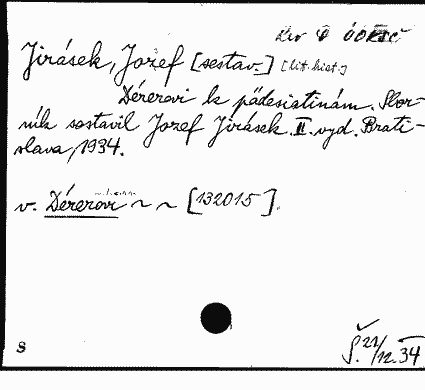 Jirásek, Jozef [sestav.] [lit. hist.]
Dérerovi k pädesiatinám. Sbor-
ník sostavil Jozef Jirásek. II. vyd. Brati-
slava, 1934.
v. Dérerovi ~ ~ [132015].
S
Š. 21/12.34